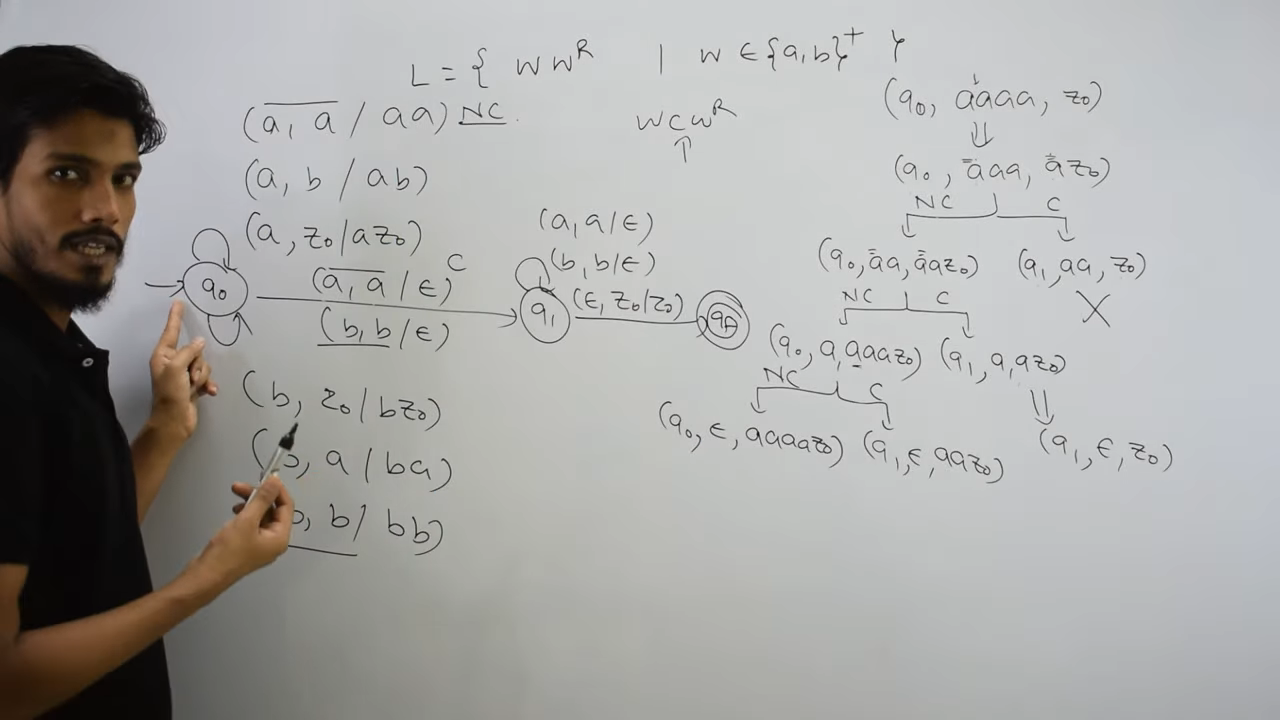 L = { wwᴿ | w ∈ {a,b}⁺ }
wcwᴿ
↑
(a, a / aa) NC
(a, b / ab)
(a, z₀ / az₀)
q₀
(a, a / ε) C
(b, b / ε)
(b, z₀ / bz₀)
, a / ba)
b, b / bb)
(a, a / ε)
(b, b / ε)
q₁
(ε, z₀ / z₀)
(q₀, aaaa, z₀)
⇓
(q₀, aaa, az₀)
NC C
(q₀, aa, aaz₀) (q₁, aa, z₀)
NC C X
(q₀, a, aaaz₀) (q₁, a, az₀)
NC C ⇓
(q₀, ε, aaaaz₀) (q₁, ε, aaz₀) (q₁, ε, z₀)